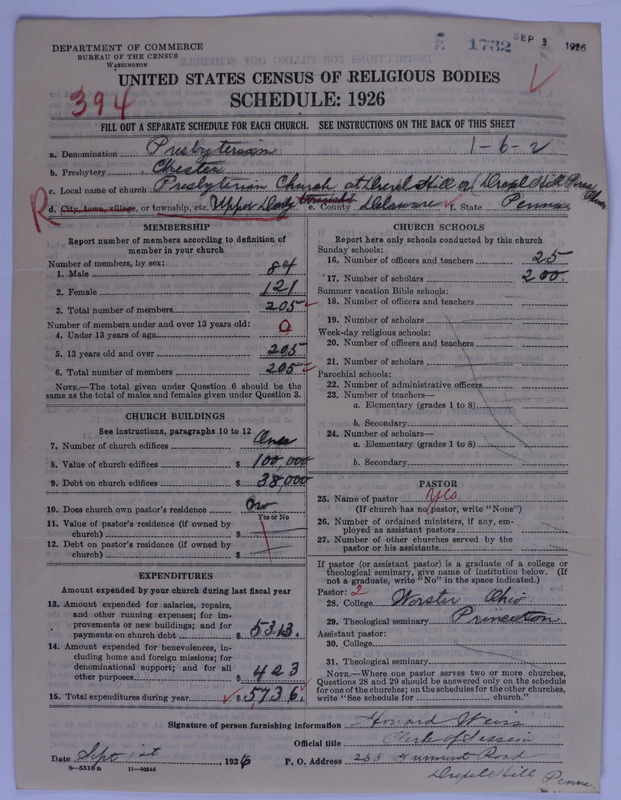 1732
SEP 3 1926
DEPARTMENT OF COMMERCE
BUREAU OF THE CENSUS
WASHINGTON
UNITED STATES CENSUS OF RELIGIOUS BODIES
394
SCHEDULE: 1926
FILL OUT A SEPARATE SCHEDULE FOR EACH CHURCH. SEE INSTRUCTIONS ON THE BACK OF THIS SHEET
1-6-2
a. Denomination Presbyterian
b. Presbytery Chester
c. Local name of church Presbyterian Church at Drexel Hill or (Drexel Hill Pres
R d. City, town, village, or township, etc. Upper Darby township e. County Delaware f. State Penna
MEMBERSHIP
Report number of members according to definition of
member in your church
Number of members, by sex:
1. Male 84
2. Female 121
3. Total number of members 205
Number of members under and over 13 years old:
4. Under 13 years of age 0
5. 13 years old and over 205
6. Total number of members 205
NOTE.—The total given under Question 6 should be the
same as the total of males and females given under Question 3.
CHURCH BUILDINGS
See instructions, paragraphs 10 to 12
7. Number of church edifices One
8. Value of church edifices $ 100,000
9. Debt on church edifices $ 38,000
10. Does church own pastor's residence No
Yes or No
11. Value of pastor's residence (if owned by
church) $
12. Debt on pastor's residence (if owned by
church) $
EXPENDITURES
Amount expended by your church during last fiscal year
13. Amount expended for salaries, repairs,
and other running expenses; for im-
provements or new buildings; and for
payments on church debt $ 5313.
14. Amount expended for benevolences, in-
cluding home and foreign missions; for
denominational support; and for all
other purposes $ 423
15. Total expenditures during year $ 5736.
CHURCH SCHOOLS
Report here only schools conducted by this church
Sunday schools:
16. Number of officers and teachers 25
17. Number of scholars 200.
Summer vacation Bible schools:
18. Number of officers and teachers
19. Number of scholars
Week-day religious schools:
20. Number of officers and teachers
21. Number of scholars
Parochial schools:
22. Number of administrative officers
23. Number of teachers—
a. Elementary (grades 1 to 8)
b. Secondary
24. Number of scholars—
a. Elementary (grades 1 to 8)
b. Secondary
PASTOR
25. Name of pastor yes
(If church has no pastor, write "None")
26. Number of ordained ministers, if any, em-
ployed as assistant pastors
27. Number of other churches served by the
pastor or his assistants
If pastor (or assistant pastor) is a graduate of a college or
theological seminary, give name of institution below. (If
not a graduate, write "No" in the space indicated.)
Pastor: 2
28. College Worster Ohio
29. Theological seminary Princeton
Assistant pastor:
30. College
31. Theological seminary
NOTE.—Where one pastor serves two or more churches,
Questions 28 and 29 should be answered only on the schedule
for one of the churches; on the schedules for the other churches,
write "See schedule for church."
Signature of person furnishing information Howard Weiss
Official title Clerk of Session
Date Sept 1st 1926 P. O. Address Road
8—5518a 11—9084d
Drexel Hill Penna.